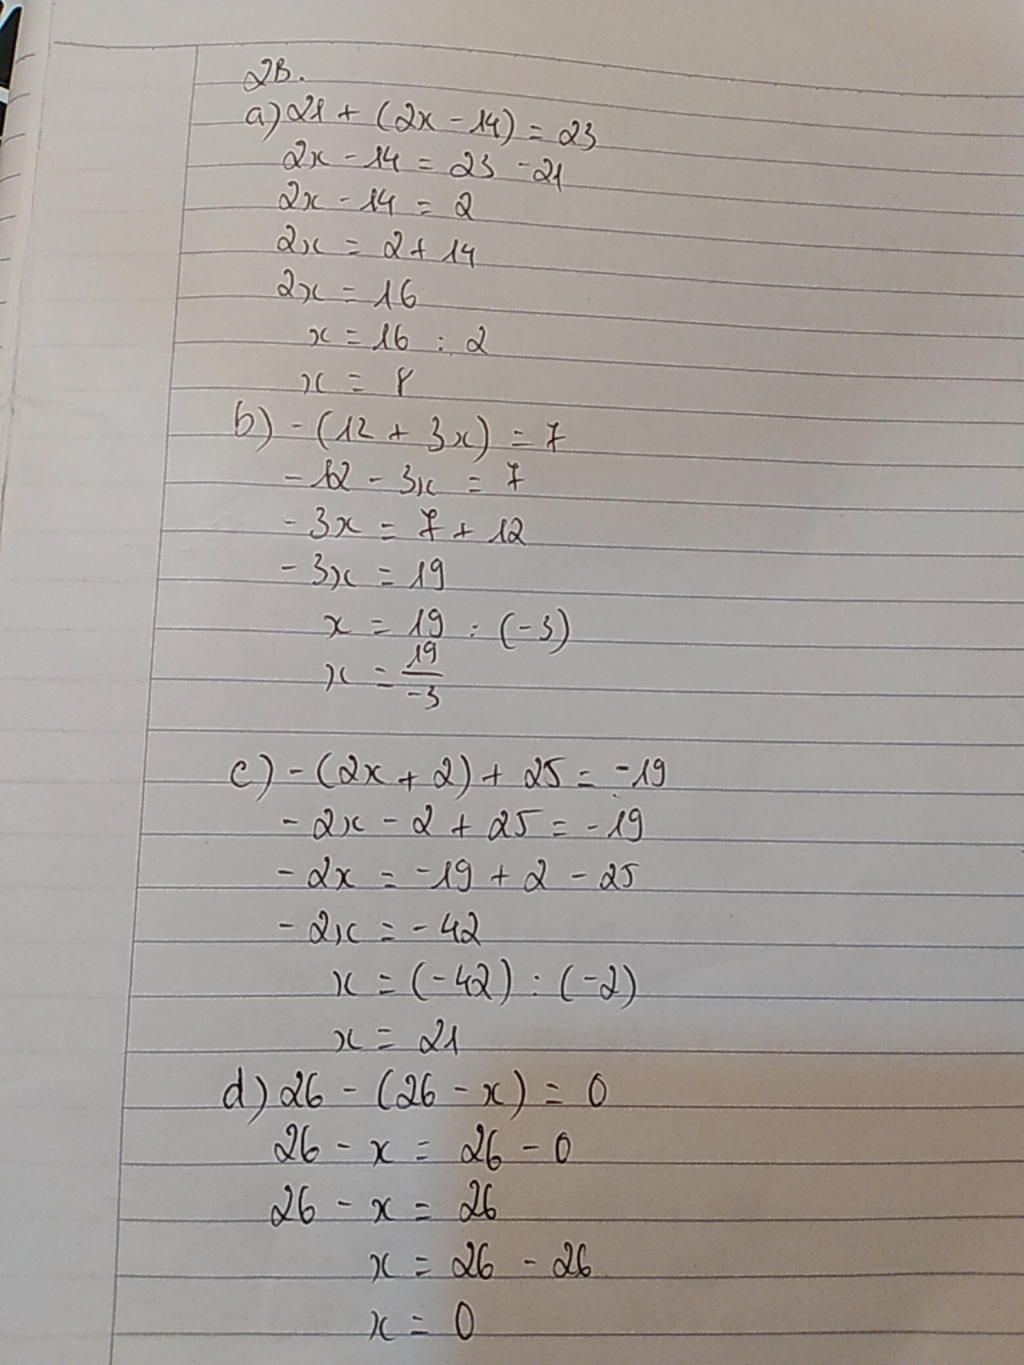 2B.
a) 21 + (2x - 14) = 23
2x - 14 = 23 - 21
2x - 14 = 2
2x = 2 + 14
2x = 16
x = 16 : 2
x = 8
b) - (12 + 3x) = 7
- 12 - 3x = 7
- 3x = 7 + 12
- 3x = 19
x = 19 : (-3)
x = 19/-3
c) - (2x + 2) + 25 = -19
- 2x - 2 + 25 = -19
- 2x = -19 + 2 - 25
- 2x = - 42
x = (-42) : (-2)
x = 21
d) 26 - (26 - x) = 0
26 - x = 26 - 0
26 - x = 26
x = 26 - 26
x = 0